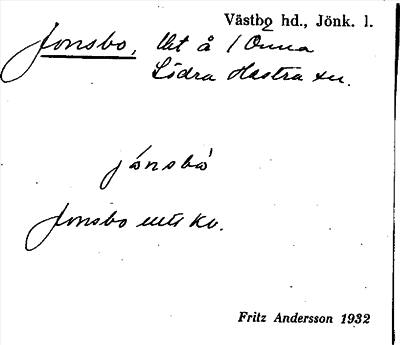 Västbo hd., Jönk. l.
Jonsbo, lht å / Önna
Södra Hestra sn.
jónsbo'
Jonsbo
Fritz Andersson 1932